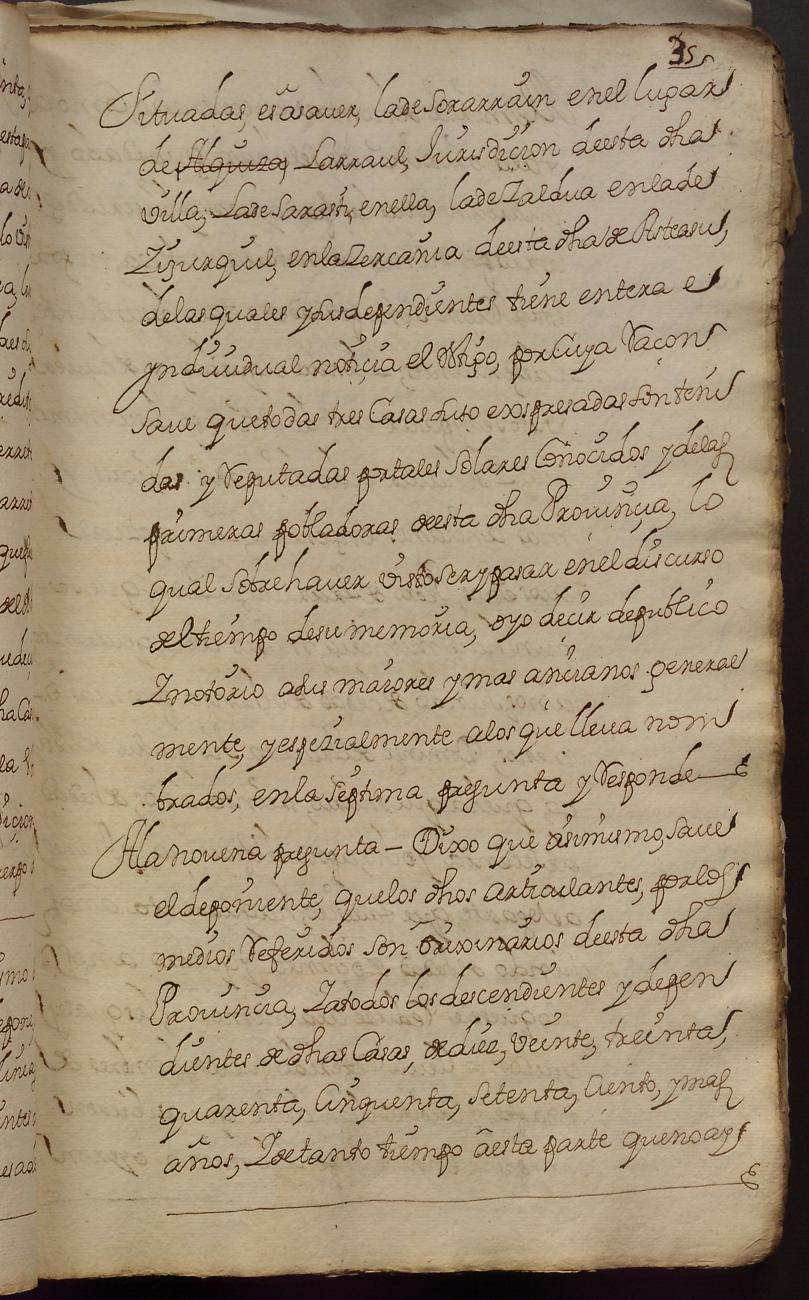 35
Situadas, es âsauer, lade Sorarrain enel lugar
de Alquiza, Larraul, Jurisdicion deesta dha
Villa, Lade Sarasti, enella, lade Zaldua enlade
Zijurquil, enlaZercania deesta dha de Asteasu,
delas quales y sus dependientes tiene entera e
yndiuidual noticia el tttigo, por Cuya Raçon
saue quetodas tres Casas suso exspresadas son teni
das y Reputadas por tales Solares Coñocidos y delas
primeras pobladoras deesta dha Prouinçia, lo
qual sobre hauer visto ser y pasar enel discurso
del tiempo desu memoria, oyo decir depublico
Znotorio asus maiores y mas ancianos general
mente, y espezialmente alos que lleua nom
brados, enla septima pregunta y Responde
Ala nouena pregunta - Dixo que âsimismo, saue
el deponiente, quelos dhos articulantes, por los
medios Referidos son orixinarios deesta dha
Prouincia, Zatodos los descendientes y depen
dientes de dhas Casas, de diez, veinte, treinta,
quarenta, Cinquenta, setenta, Ciento, y mas
años, Zdetanto tiempo âesta parte quenoay